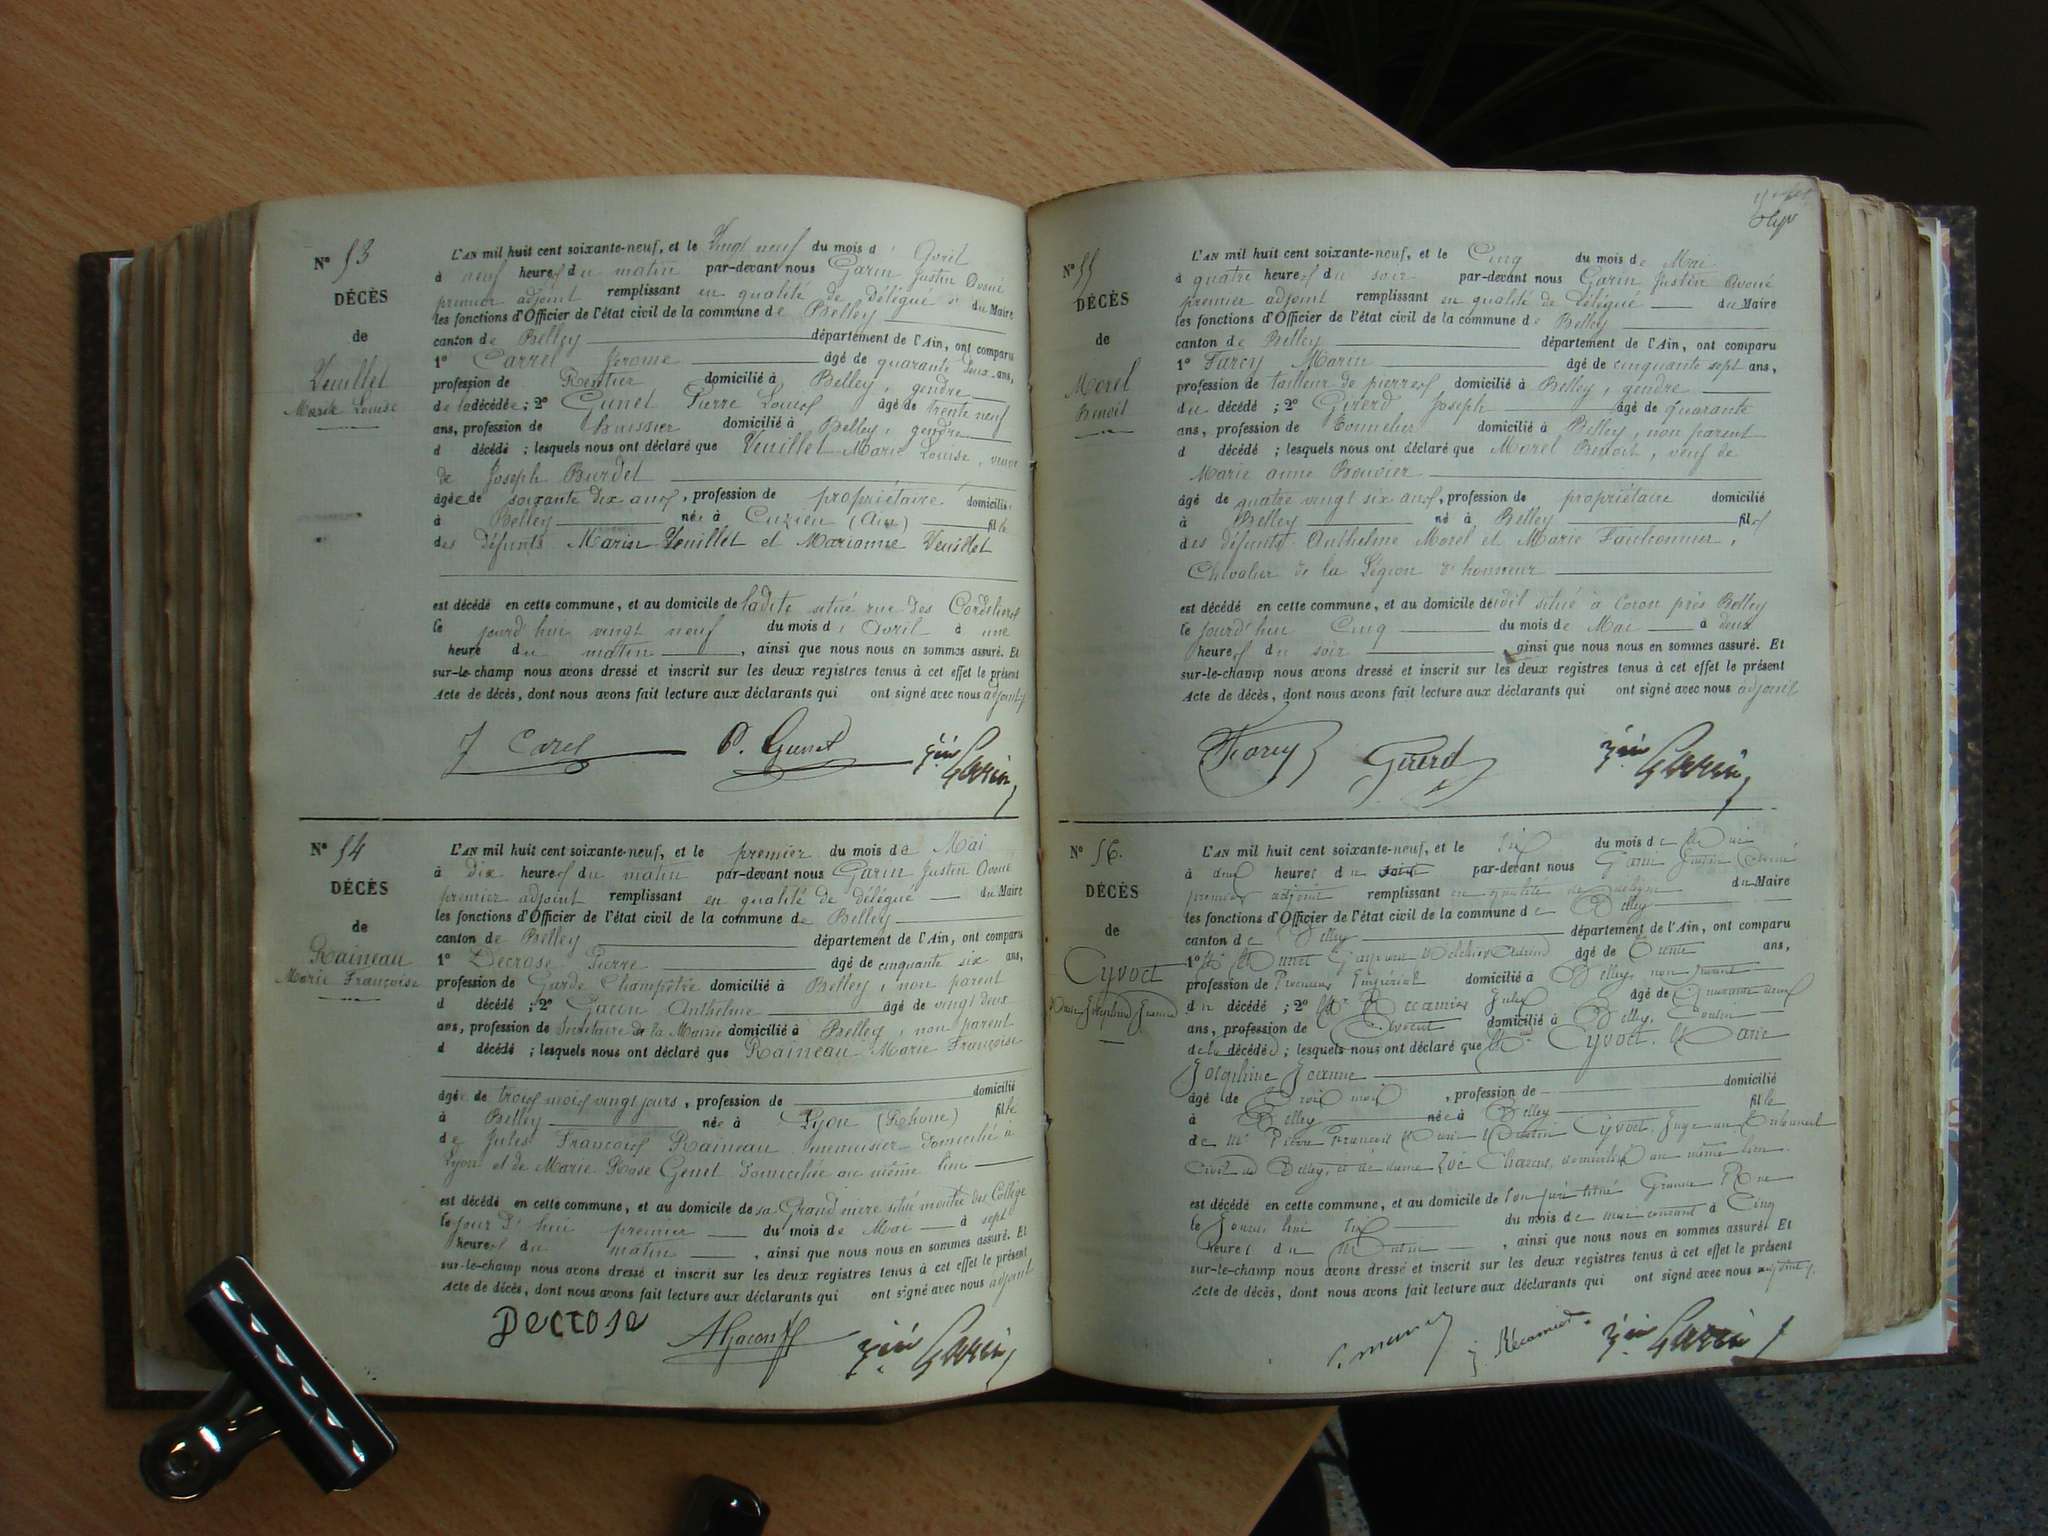 N° 53
DÉCÈS
de
Veuillet
Marie Louise
L'AN mil huit cent soixante-neuf, et le Vingt neuf du mois d' Avril
à neuf heures du matin par-devant nous Garin Justin Avoué
premier adjoint remplissant en qualité de délégué du Maire
les fonctions d'Officier de l'état civil de la commune de Belley
canton de Belley département de l'Ain, ont comparu
1° Carrel Jérome âgé de quarante deux ans,
profession de Rentier domicilié à Belley, gendre
de la décédée ; 2° Gunet Pierre Louis âgé de trente neuf
ans, profession de huissier domicilié à Belley, gendre
d décédé ; lesquels nous ont déclaré que Veuillet Marie Louise, veuve
de Joseph Burdet
âgée de soixante dix ans, profession de propriétaire domiciliée
à Belley née à Cuzieu (Ain) fille
des défunts Marin Veuillet et Marianne Veuillet
est décédé en cette commune, et au domicile de ladite situé rue des Cordeliers
le jourd'hui vingt neuf du mois d' Avril à une
heure du matin, ainsi que nous nous en sommes assuré. Et
sur-le-champ nous avons dressé et inscrit sur les deux registres tenus à cet effet le présent
Acte de décès, dont nous avons fait lecture aux déclarants qui ont signé avec nous adjoint
J Carel P. Gunet Garin
N° 54
DÉCÈS
de
Raineau
Marie Françoise
L'AN mil huit cent soixante-neuf, et le premier du mois de Mai
à dix heures du matin par-devant nous Garin Justin Avoué
premier adjoint remplissant en qualité de délégué du Maire
les fonctions d'Officier de l'état civil de la commune de Belley
canton de Belley département de l'Ain, ont comparu
1° Decrose Pierre âgé de cinquante six ans,
profession de Garde Champêtre domicilié à Belley, non parent
d décédé ; 2° Gacon Anthelme âgé de vingt deux
ans, profession de Secrétaire de la Mairie domicilié à Belley, non parent
d décédé ; lesquels nous ont déclaré que Raineau Marie Françoise
âgée de trois mois vingt jours, profession de domicilié
à Belley née à Lyon (Rhone) fille
de Jules François Raineau menuisier domicilié à
Lyon et de Marie Rose Genet domiciliée au même lieu
est décédé en cette commune, et au domicile de sa Grand mère situé montée du Collège
le jour d'hui premier du mois de Mai à sept
heures du matin, ainsi que nous nous en sommes assuré. Et
sur-le-champ nous avons dressé et inscrit sur les deux registres tenus à cet effet le présent
Acte de décès, dont nous avons fait lecture aux déclarants qui ont signé avec nous adjoint
Decrose AGacon Garin
N° 55
DÉCÈS
de
Morel
Benoit
L'AN mil huit cent soixante-neuf, et le Cinq du mois de Mai
à quatre heures du soir par-devant nous Garin Justin Avoué
premier adjoint remplissant en qualité de délégué du Maire
les fonctions d'Officier de l'état civil de la commune de Belley
canton de Belley département de l'Ain, ont comparu
1° Farcy Marin âgé de cinquante sept ans,
profession de tailleur de pierres domicilié à Belley, gendre
du décédé ; 2° Girerd Joseph âgé de quarante
ans, profession de Tonnelier domicilié à Belley, non parent
d décédé ; lesquels nous ont déclaré que Morel Benoit, veuf de
Marie anne Bouvier
âgé de quatre vingt six ans, profession de propriétaire domicilié
à Belley né à Belley fils
des défunts Anthelme Morel et Marie Fauconnier,
Chevalier de la Légion d'honneur
est décédé en cette commune, et au domicile dudit situé à Coron près Belley
le jourd'hui Cinq du mois de Mai à deux
heures du soir, ainsi que nous nous en sommes assuré. Et
sur-le-champ nous avons dressé et inscrit sur les deux registres tenus à cet effet le présent
Acte de décès, dont nous avons fait lecture aux déclarants qui ont signé avec nous adjoint
Farcy Girerd Garin
N° 56.
DÉCÈS
de
Cyvoct
Marie Joséphine Jeanne
L'AN mil huit cent soixante-neuf, et le six du mois de Mai
à deux heures du soir par-devant nous Garin Justin Avoué
premier adjoint remplissant en qualité de délégué du Maire
les fonctions d'Officier de l'état civil de la commune de Belley
canton de Belley département de l'Ain, ont comparu
1° Mr Munet âgé de trente ans,
profession de Procureur Impérial domicilié à Belley, non parent
du décédé ; 2° Mr Récamier Jules âgé de quarante deux
ans, profession de Avocat domicilié à Belley, Cousin
de la décédée ; lesquels nous ont déclaré que Cyvoct, Marie
Joséphine Jeanne
âgé de trois mois, profession de domicilié
à Belley née à Belley fille
de Mr Pierre François Marie Cyvoct, Juge au Tribunal
Civil de Belley, et de dame Zoé Charcot, domiciliés au même lieu.
est décédé en cette commune, et au domicile de son père situé Grande Rue
le Jourd'hui six du mois de mai courant à Cinq
heures du Matin, ainsi que nous nous en sommes assuré. Et
sur-le-champ nous avons dressé et inscrit sur les deux registres tenus à cet effet le présent
Acte de décès, dont nous avons fait lecture aux déclarants qui ont signé avec nous adjoint.
J. Récamier Garin